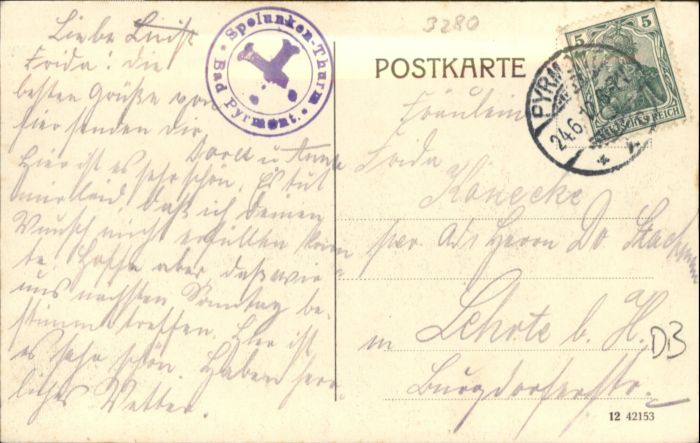 Liebe
Frida! die
besten Grüße von
hier senden dir,
Dorch u. Anna
Hier ist es sehr schön. Es tut
mir leid daß ich deinen
Wunsch nicht erfüllen konn
te. Hoffe aber daß wir
uns nächsten Sonntag be-
stimmt treffen. Hier ist
es sehr schön. Haben herr-
liches Wetter.
Spelunken-Thurm
Bad Pyrmont.
3280
POSTKARTE
5 5
DEUTSCHES REICH
PYRM
24.6.
Fräulein
Frida
Könecke
per. Adr. Herrn Dr.
in Lehrte b. H.
Burgdorferstr.
DB
12 42153